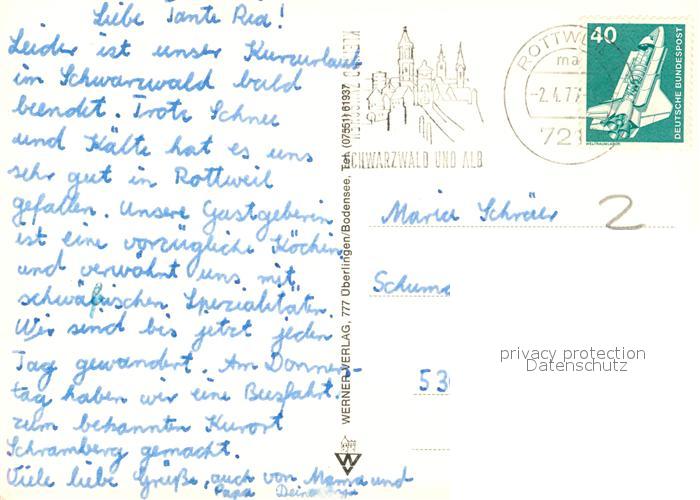 Liebe Tante Ria!
Leider ist unser Kurzurlaub
im Schwarzwald bald
beendet. Trotz Schnee
und Kälte hat es uns
sehr gut in Rottweil
gefallen. Unsere Gastgeberin
ist eine vorzügliche Köchin
und verwöhnt uns mit
schwäbischen Spezialitäten.
Wir sind bis jetzt jeden
Tag gewandert. Am Donners-
tag haben wir eine Busfahrt
zum bekannten Kurort
Schramberg gemacht.
Viele liebe Grüße, auch von Mama und
Papa Deine
WERNER-VERLAG, 777 Überlingen/Bodensee, Tel. (07551) 61937
W
SCHWARZWALD UND ALB
ROTTWEIL
-2.4.77
721
40
DEUTSCHE BUNDESPOST
WELTRAUMLABOR
2
Maria Schräer
Schuma
530
privacy protection
Datenschutz